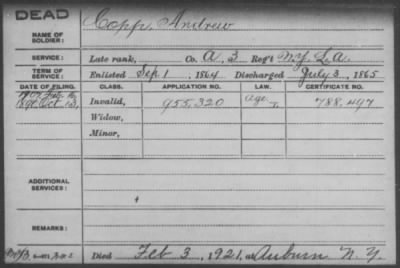 DEAD
NAME OF SOLDIER: Copp, Andrew
SERVICE: Late rank, Co. A. 3 Reg't N.Y. L.A.
TERM OF SERVICE: Enlisted Sep 1, 1864 Discharged July 3, 1865
DATE OF FILING. CLASS. APPLICATION NO. LAW. CERTIFICATE NO.
1907
Oct 13, Invalid, 955,320 Age, 788,497
Widow,
Minor,
ADDITIONAL SERVICES:
REMARKS:
Died Feb 3, 1921, at Auburn N.Y.